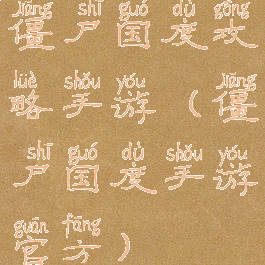 jiāng shī guó dù gōng
僵尸国度攻
lüè shǒu yóu jiāng
略手游（僵
shī guó dù shǒu yóu
尸国度手游
guān fāng
官方）